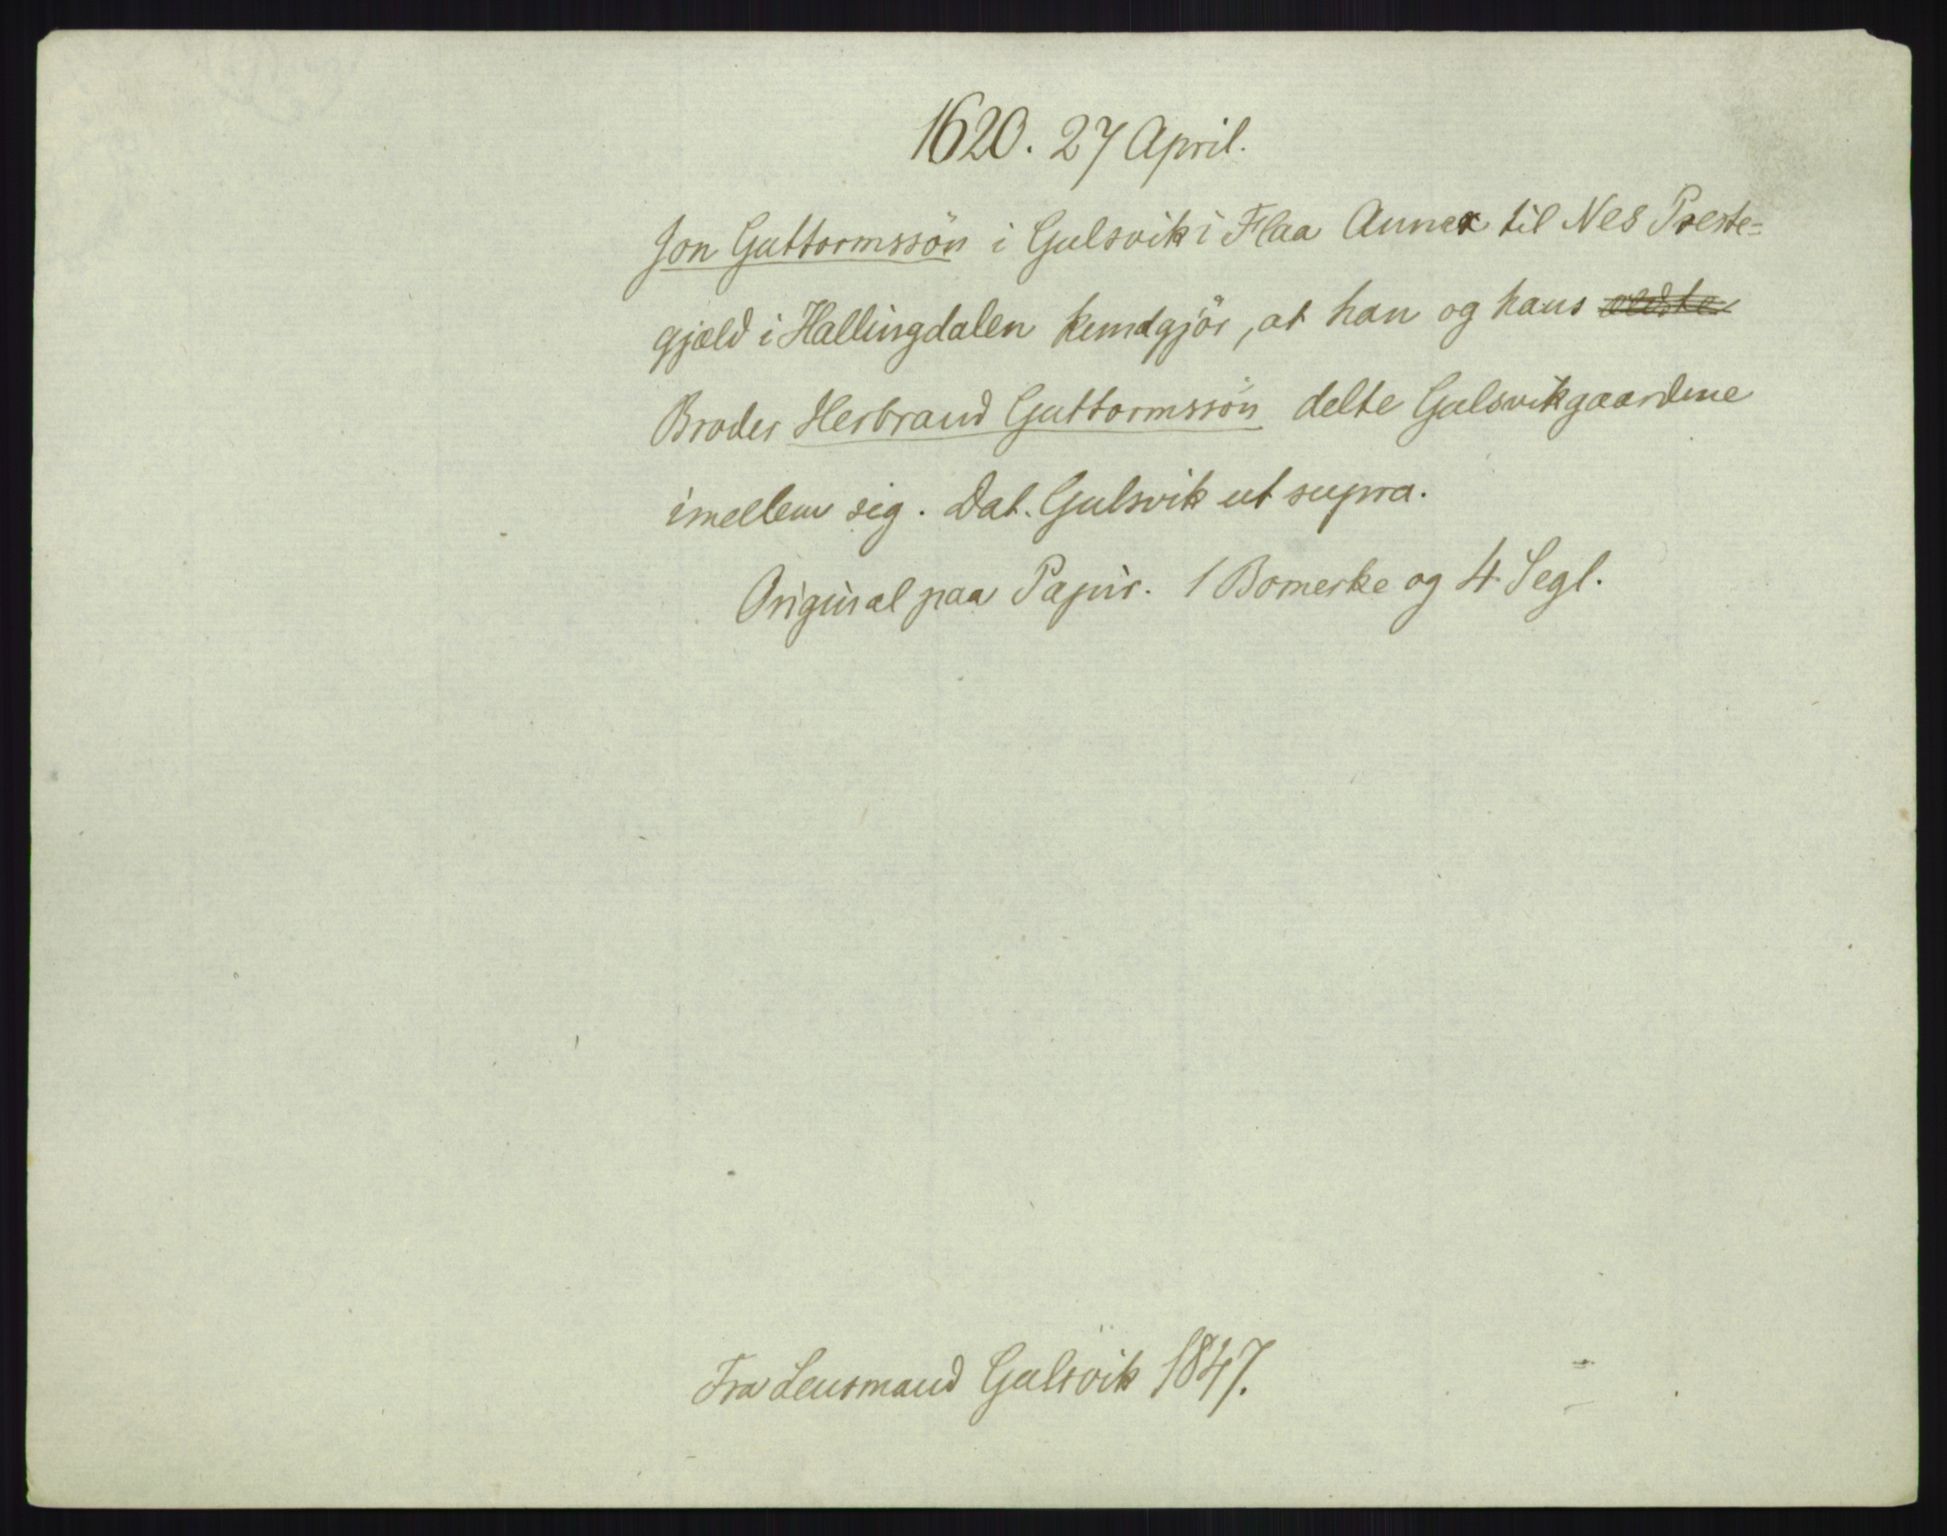 1620. 27 April.
Jon Guttormssön i Gulsvik i Flaa Annex til Nes Preste-
gjæld i Hallingdalen kundgjör, at han og hans ældste
Broder Herbrand Guttormssön delte Gulsvikgaardene
imellem sig. Dat. Gulsvik ut supra.
Original paa Papir. 1 Bomerke og 4 Segl.
Fra Lensmand Gulsvik 1847.